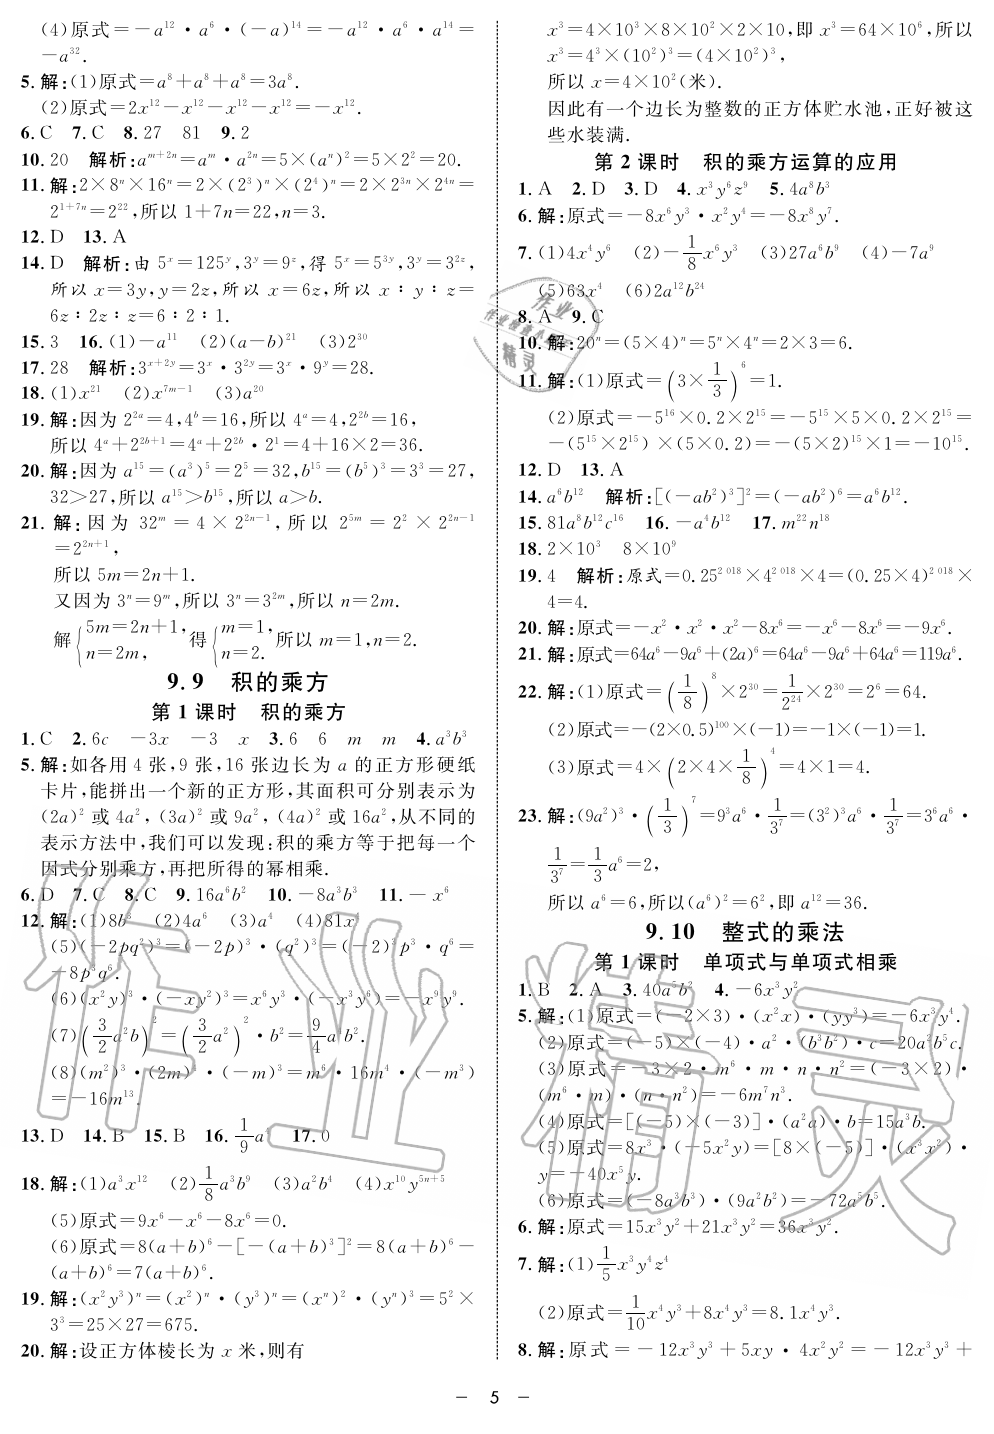 (4)原式=-a¹²·a⁶·(-a)¹⁴=-a¹²·a⁶·a¹⁴=
-a³².
5.解:(1)原式=a⁸+a⁸+a⁸=3a⁸.
(2)原式=2x¹²-x¹²-x¹²-x¹²=-x¹².
6.C 7.C 8.27 81 9.2
10.20 解析:aᵐ⁺²ⁿ=aᵐ·a²ⁿ=5×(aⁿ)²=5×2²=20.
11.解:2×8ⁿ×16ⁿ=2×(2³)ⁿ×(2⁴)ⁿ=2×2³ⁿ×2⁴ⁿ=
2¹⁺⁷ⁿ=2²²,所以1+7n=22,n=3.
12.D 13.A
14.D 解析:由5ˣ=125ʸ,3ʸ=9ᶻ,得5ˣ=5³ʸ,3ʸ=3²ᶻ,
所以x=3y,y=2z,所以x=6z,所以x∶y∶z=
6z∶2z∶z=6∶2∶1.
15.3 16.(1)-a¹¹ (2)(a-b)²¹ (3)2³⁰
17.28 解析:3ˣ⁺²ʸ=3ˣ·3²ʸ=3ˣ·9ʸ=28.
18.(1)x²¹ (2)x⁷ᵐ⁻¹ (3)a²⁰
19.解:因为2²ᵃ=4,4ᵇ=16,所以4ᵃ=4,2²ᵇ=16,
所以4ᵃ+2²ᵇ⁺¹=4ᵃ+2²ᵇ·2¹=4+16×2=36.
20.解:因为a¹⁵=(a³)⁵=2⁵=32,b¹⁵=(b⁵)³=3³=27,
32>27,所以a¹⁵>b¹⁵,所以a>b.
21.解:因为32ᵐ=4×2²ⁿ⁻¹,所以2⁵ᵐ=2²×2²ⁿ⁻¹
=2²ⁿ⁺¹,
所以5m=2n+1.
又因为3ⁿ=9ᵐ,所以3ⁿ=3²ᵐ,所以n=2m.
解{5m=2n+1, n=2m, 得{m=1, n=2. 所以m=1,n=2.
9.9 积的乘方
第1课时 积的乘方
1.C 2.6c -3x -3 x 3.6 6 m m 4.a³b³
5.解:如各用4张,9张,16张边长为a的正方形硬纸
卡片,能拼出一个新的正方形,其面积可分别表示为
(2a)²或4a²,(3a)²或9a²,(4a)²或16a²,从不同的
表示方法中,我们可以发现:积的乘方等于把每一个
因式分别乘方,再把所得的幂相乘.
6.D 7.C 8.C 9.16a⁶b² 10.-8a³b³ 11.-x⁶
12.解:(1)8b³ (2)4a⁶ (3)a⁴ (4)81x⁴
(5)(-2pq²)³=(-2p)³·(q²)³=(-2)³p³·q⁶=
-8p³q⁶.
(6)(x²y)³·(-xy²)³=x⁶y³·(-x³y⁶)=-x⁹y⁹.
(7)(3/2 a²b)²=(3/2 a²)²·b²=9/4 a⁴b².
(8)(m²)³·(2m)⁴·(-m)³=m⁶·16m⁴·(-m³)
=-16m¹³.
13.D 14.B 15.B 16.1/9 a⁴ 17.0
18.解:(1)a³x¹² (2)1/8 a³b⁹ (3)a²b⁴ (4)x¹⁰y⁵ⁿ⁺⁵
(5)原式=9x⁶-x⁶-8x⁶=0.
(6)原式=8(a+b)⁶-[-(a+b)³]²=8(a+b)⁶-
(a+b)⁶=7(a+b)⁶.
19.解:(x²y³)ⁿ=(x²)ⁿ·(y³)ⁿ=(xⁿ)²·(yⁿ)³=5²×
3³=25×27=675.
20.解:设正方体棱长为x米,则有
x³=4×10³×8×10²×2×10,即x³=64×10⁶,所以
x³=4³×(10²)³=(4×10²)³,
所以x=4×10²(米).
因此有一个边长为整数的正方体贮水池,正好被这
些水装满.
第2课时 积的乘方运算的应用
1.A 2.D 3.D 4.x³y⁶z⁹ 5.4a⁸b³
6.解:原式=-8x⁶y³·x²y⁴=-8x⁸y⁷.
7.(1)4x⁴y⁶ (2)-1/8 x⁶y³ (3)27a⁶b⁹ (4)-7a⁹
(5)63x⁴ (6)2a¹²b²⁴
8.A 9.C
10.解:20ⁿ=(5×4)ⁿ=5ⁿ×4ⁿ=2×3=6.
11.解:(1)原式=(3×1/3)⁶=1.
(2)原式=-5¹⁶×0.2×2¹⁵=-5¹⁵×5×0.2×2¹⁵=
-(5¹⁵×2¹⁵)×(5×0.2)=-(5×2)¹⁵×1=-10¹⁵.
12.D 13.A
14.a⁶b¹² 解析:[(-ab²)³]²=(-ab²)⁶=a⁶b¹².
15.81a⁸b¹²c¹⁶ 16.-a⁴b¹² 17.m²²n¹⁸
18.2×10³ 8×10⁹
19.4 解析:原式=0.25²⁰¹⁸×4²⁰¹⁸×4=(0.25×4)²⁰¹⁸×
4=4.
20.解:原式=-x²·x²·x²-8x⁶=-x⁶-8x⁶=-9x⁶.
21.解:原式=64a⁶-9a⁶+(2a)⁶=64a⁶-9a⁶+64a⁶=119a⁶.
22.解:(1)原式=(1/8)⁸×2³⁰=1/2²⁴×2³⁰=2⁶=64.
(2)原式=-(2×0.5)¹⁰⁰×(-1)=-1×(-1)=1.
(3)原式=4×(2×4×1/8)⁴=4×1=4.
23.解:(9a²)³·(1/3)⁷=9³a⁶·1/3⁷=(3²)³a⁶·1/3⁷=3⁶a⁶·
1/3⁷=1/3 a⁶=2,
所以a⁶=6,所以(a⁶)²=6²,即a¹²=36.
9.10 整式的乘法
第1课时 单项式与单项式相乘
1.B 2.A 3.40a⁵b² 4.-6x³y²
5.解:(1)原式=(-2×3)·(x²x)·(yy³)=-6x³y⁴.
(2)原式=(-5)×(-4)·a²·(b³b²)·c=20a²b⁵c.
(3)原式=-3×2·m⁶·m·n·n²=(-3×2)·
(m⁶·m)·(n·n²)=-6m⁷n³.
(4)原式=[(-5)×(-3)]·(a²a)·b=15a³b.
(5)原式=8x³·(-5x²y)=[8×(-5)]·(x³x²)·
y=-40x⁵y.
(6)原式=(-8a³b³)·(9a²b²)=-72a⁵b⁵.
6.解:原式=15x³y²+21x³y²=36x³y².
7.解:(1)1/5 x³y⁴z⁴
(2)原式=1/10 x⁴y³+8x⁴y³=8.1x⁴y³.
8.解:原式=-12x³y³+5xy·4x²y²=-12x³y³+
- 5 -
作业
作业检查小
精灵
作业精灵